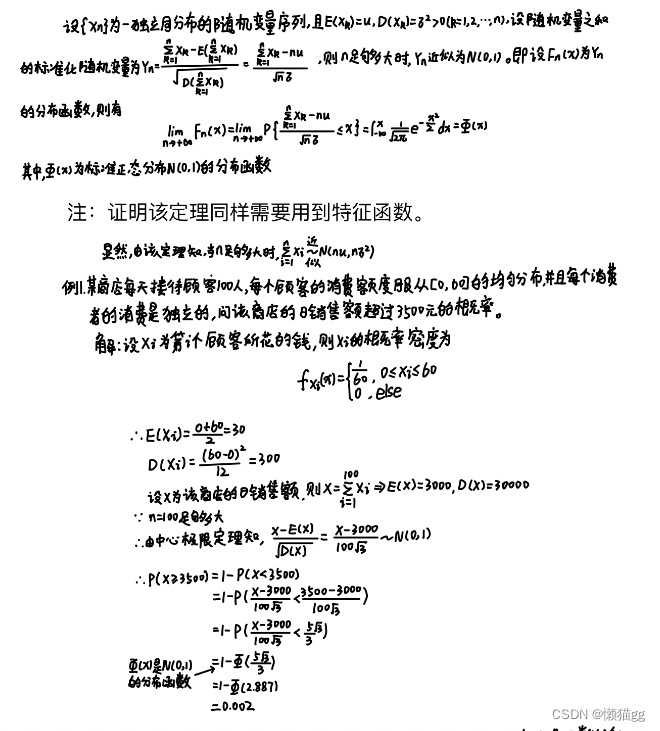 设{Xn}为一独立同分布的随机变量序列,且E(Xk)=u,D(Xk)=δ²>0(k=1,2,…,n),设随机变量之和
的标准化随机变量为Yn=(∑_{k=1}^{n}Xk-E(∑_{k=1}^{n}Xk))/√(D(∑_{k=1}^{n}Xk))=(∑_{k=1}^{n}Xk-nu)/(√n δ),则n足够大时,Yn近似为N(0,1)。即设Fn(x)为Yn
的分布函数,则有
lim_{n→+∞}Fn(x)=lim_{n→+∞}P{(∑_{k=1}^{n}Xk-nu)/(√n δ)≤x}=∫_{-∞}^{x}(1/√(2π))e^{-x²/2}dx=Φ(x)
其中,Φ(x)为标准正态分布N(0,1)的分布函数
注：证明该定理同样需要用到特征函数。
显然,由该定理知,当n足够大时,∑_{i=1}^{n}Xi 近似~ N(nu,nδ²)
例1.某商店每天接待顾客100人,每个顾客的消费额度服从[0,60]的均匀分布,并且每个消费
者的消费是独立的,问该商店的日销售额超过3500元的概率。
解:设Xi为第i个顾客所花的钱,则Xi的概率密度为
f_{Xi}(x)={1/60, 0≤xi≤60
0, else
∴E(Xi)=(0+60)/2=30
D(Xi)=(60-0)²/12=300
设X为该商店的日销售额,则X=∑_{i=1}^{100}Xi⇒E(X)=3000,D(X)=30000
∵n=100足够大
∴由中心极限定理知,(X-E(X))/√D(X)=(X-3000)/(100√3)~N(0,1)
∴P(X≥3500)=1-P(X<3500)
=1-P((X-3000)/(100√3)<(3500-3000)/(100√3))
=1-P((X-3000)/(100√3)<5√3/3)
Φ(x)是N(0,1)
的分布函数
=1-Φ(5√3/3)
=1-Φ(2.887)
=0.002
CSDN @懒猫gg